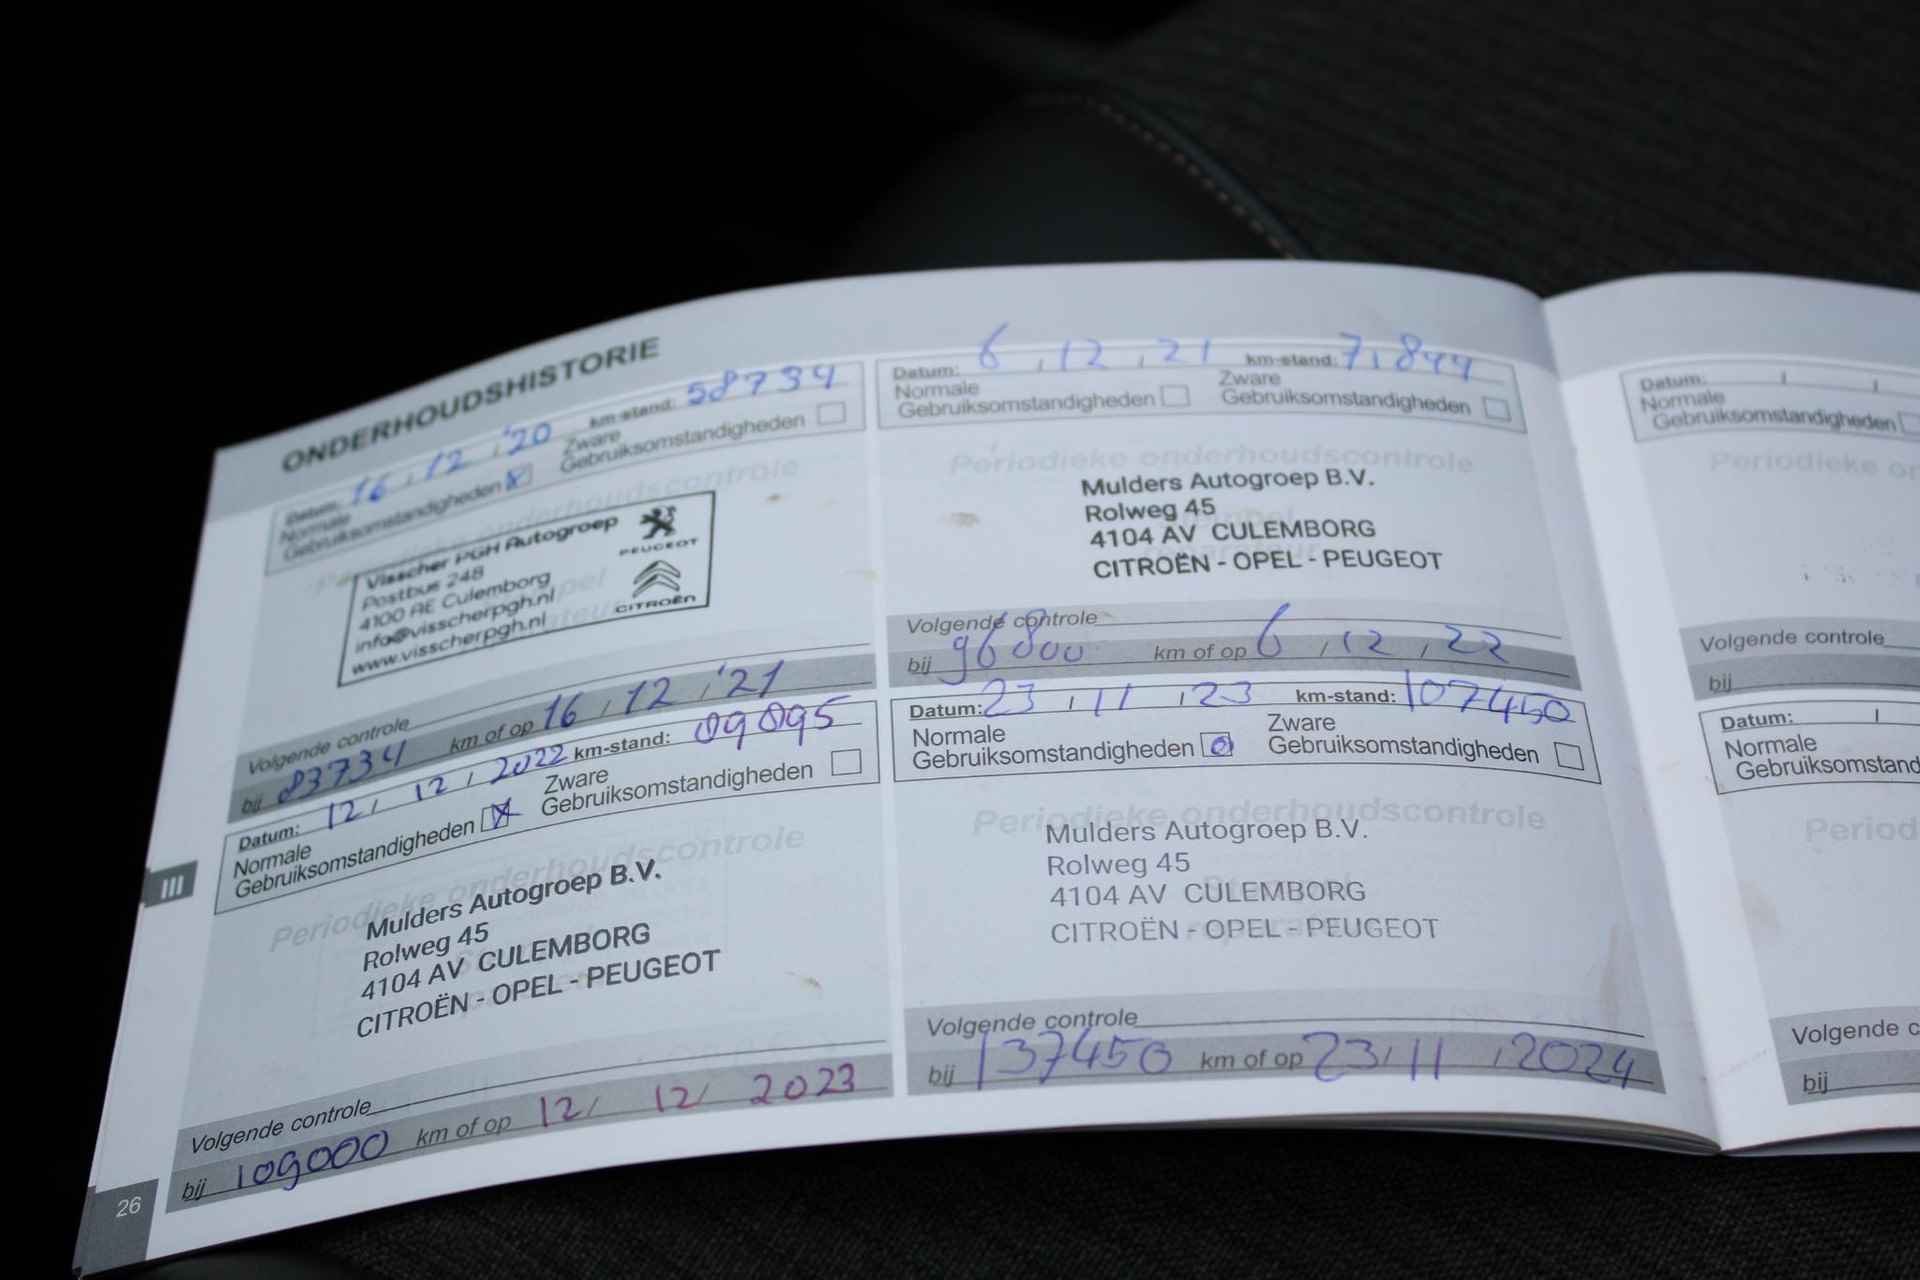 ONDERHOUDSHISTORIE
Datum: 16 / 12 / '20 km-stand: 58734
Normale Gebruiksomstandigheden
Zware Gebruiksomstandigheden
Periodieke onderhoudscontrole
Visscher PGH Autogroep
Postbus 248
4100 AE Culemborg
info@visscherpgh.nl
www.visscherpgh.nl
PEUGEOT
CITROËN
Volgende controle
bij 83734 km of op 16 / 12 / '21
Datum: 12 / 12 / 2022 km-stand:
Normale Gebruiksomstandigheden X
Zware Gebruiksomstandigheden
Periodieke onderhoudscontrole
Mulders Autogroep B.V.
Rolweg 45
4104 AV CULEMBORG
CITROËN - OPEL - PEUGEOT
Volgende controle
bij 109000 km of op 12 / 12 / 2023
26
III
Datum: 6 / 12 / 21 km-stand: 71844
Normale Gebruiksomstandigheden
Zware Gebruiksomstandigheden
Periodieke onderhoudscontrole
Mulders Autogroep B.V.
Rolweg 45
4104 AV CULEMBORG
CITROËN - OPEL - PEUGEOT
Volgende controle
bij 96800 km of op 6 / 12 / 22
Datum: 23 / 11 / 23 km-stand: 107450
Normale Gebruiksomstandigheden
Zware Gebruiksomstandigheden
Periodieke onderhoudscontrole
Mulders Autogroep B.V.
Rolweg 45
4104 AV CULEMBORG
CITROËN - OPEL - PEUGEOT
Volgende controle
bij 137450 km of op 23 / 11 / 2024
Datum: / /
Normale
Gebruiksomstandigheden
Periodieke
Volgende controle
bij
Datum: /
Normale
Gebruiksomstand
Period
Volgende c
bij